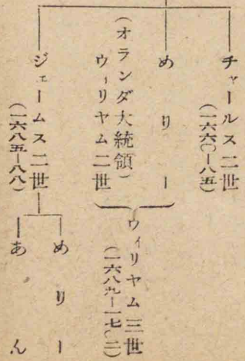 チャールス二世
(一六六〇—八五)
めりー
(オランダ大統領)
ウィリヤム二世
ウィリヤム三世
(一六八九—一七〇二)
ジェームス二世
(一六八五—八八)
めりー
あん